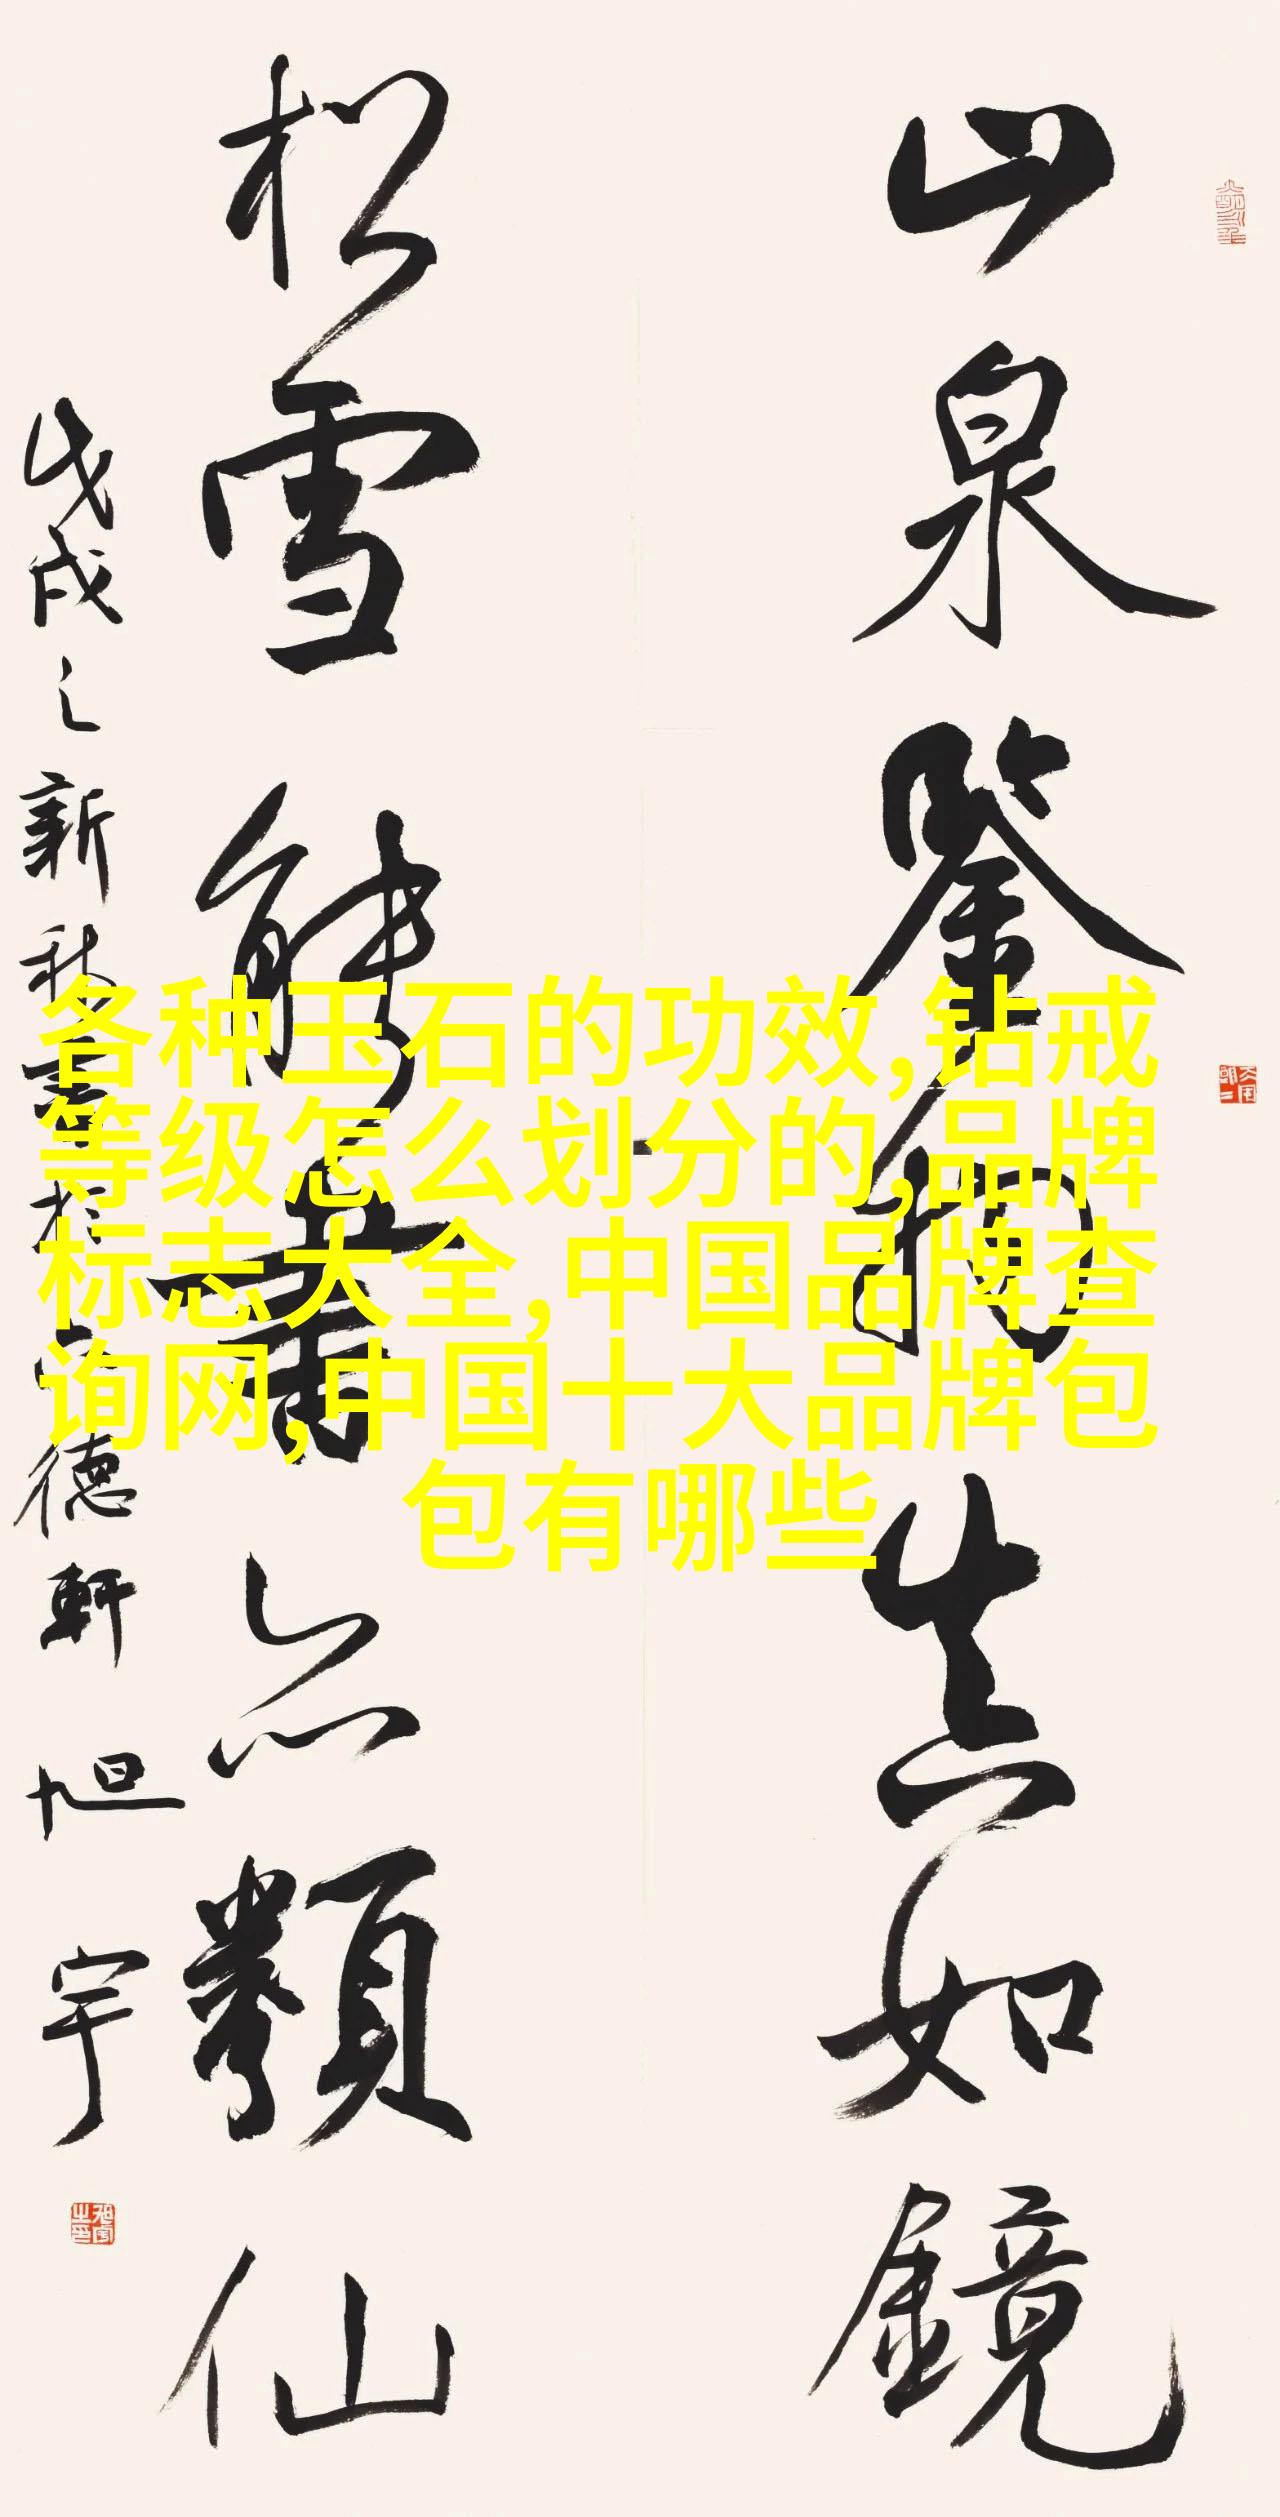 各种玉石的功效,钻戒
等级怎么划分的,品牌
标志大全,中国品牌查
询网,中国十大品牌包
包有哪些
山泉鑒物真如鏡
松雪亦類仙
戊戌之新秋書於德軒旭宇